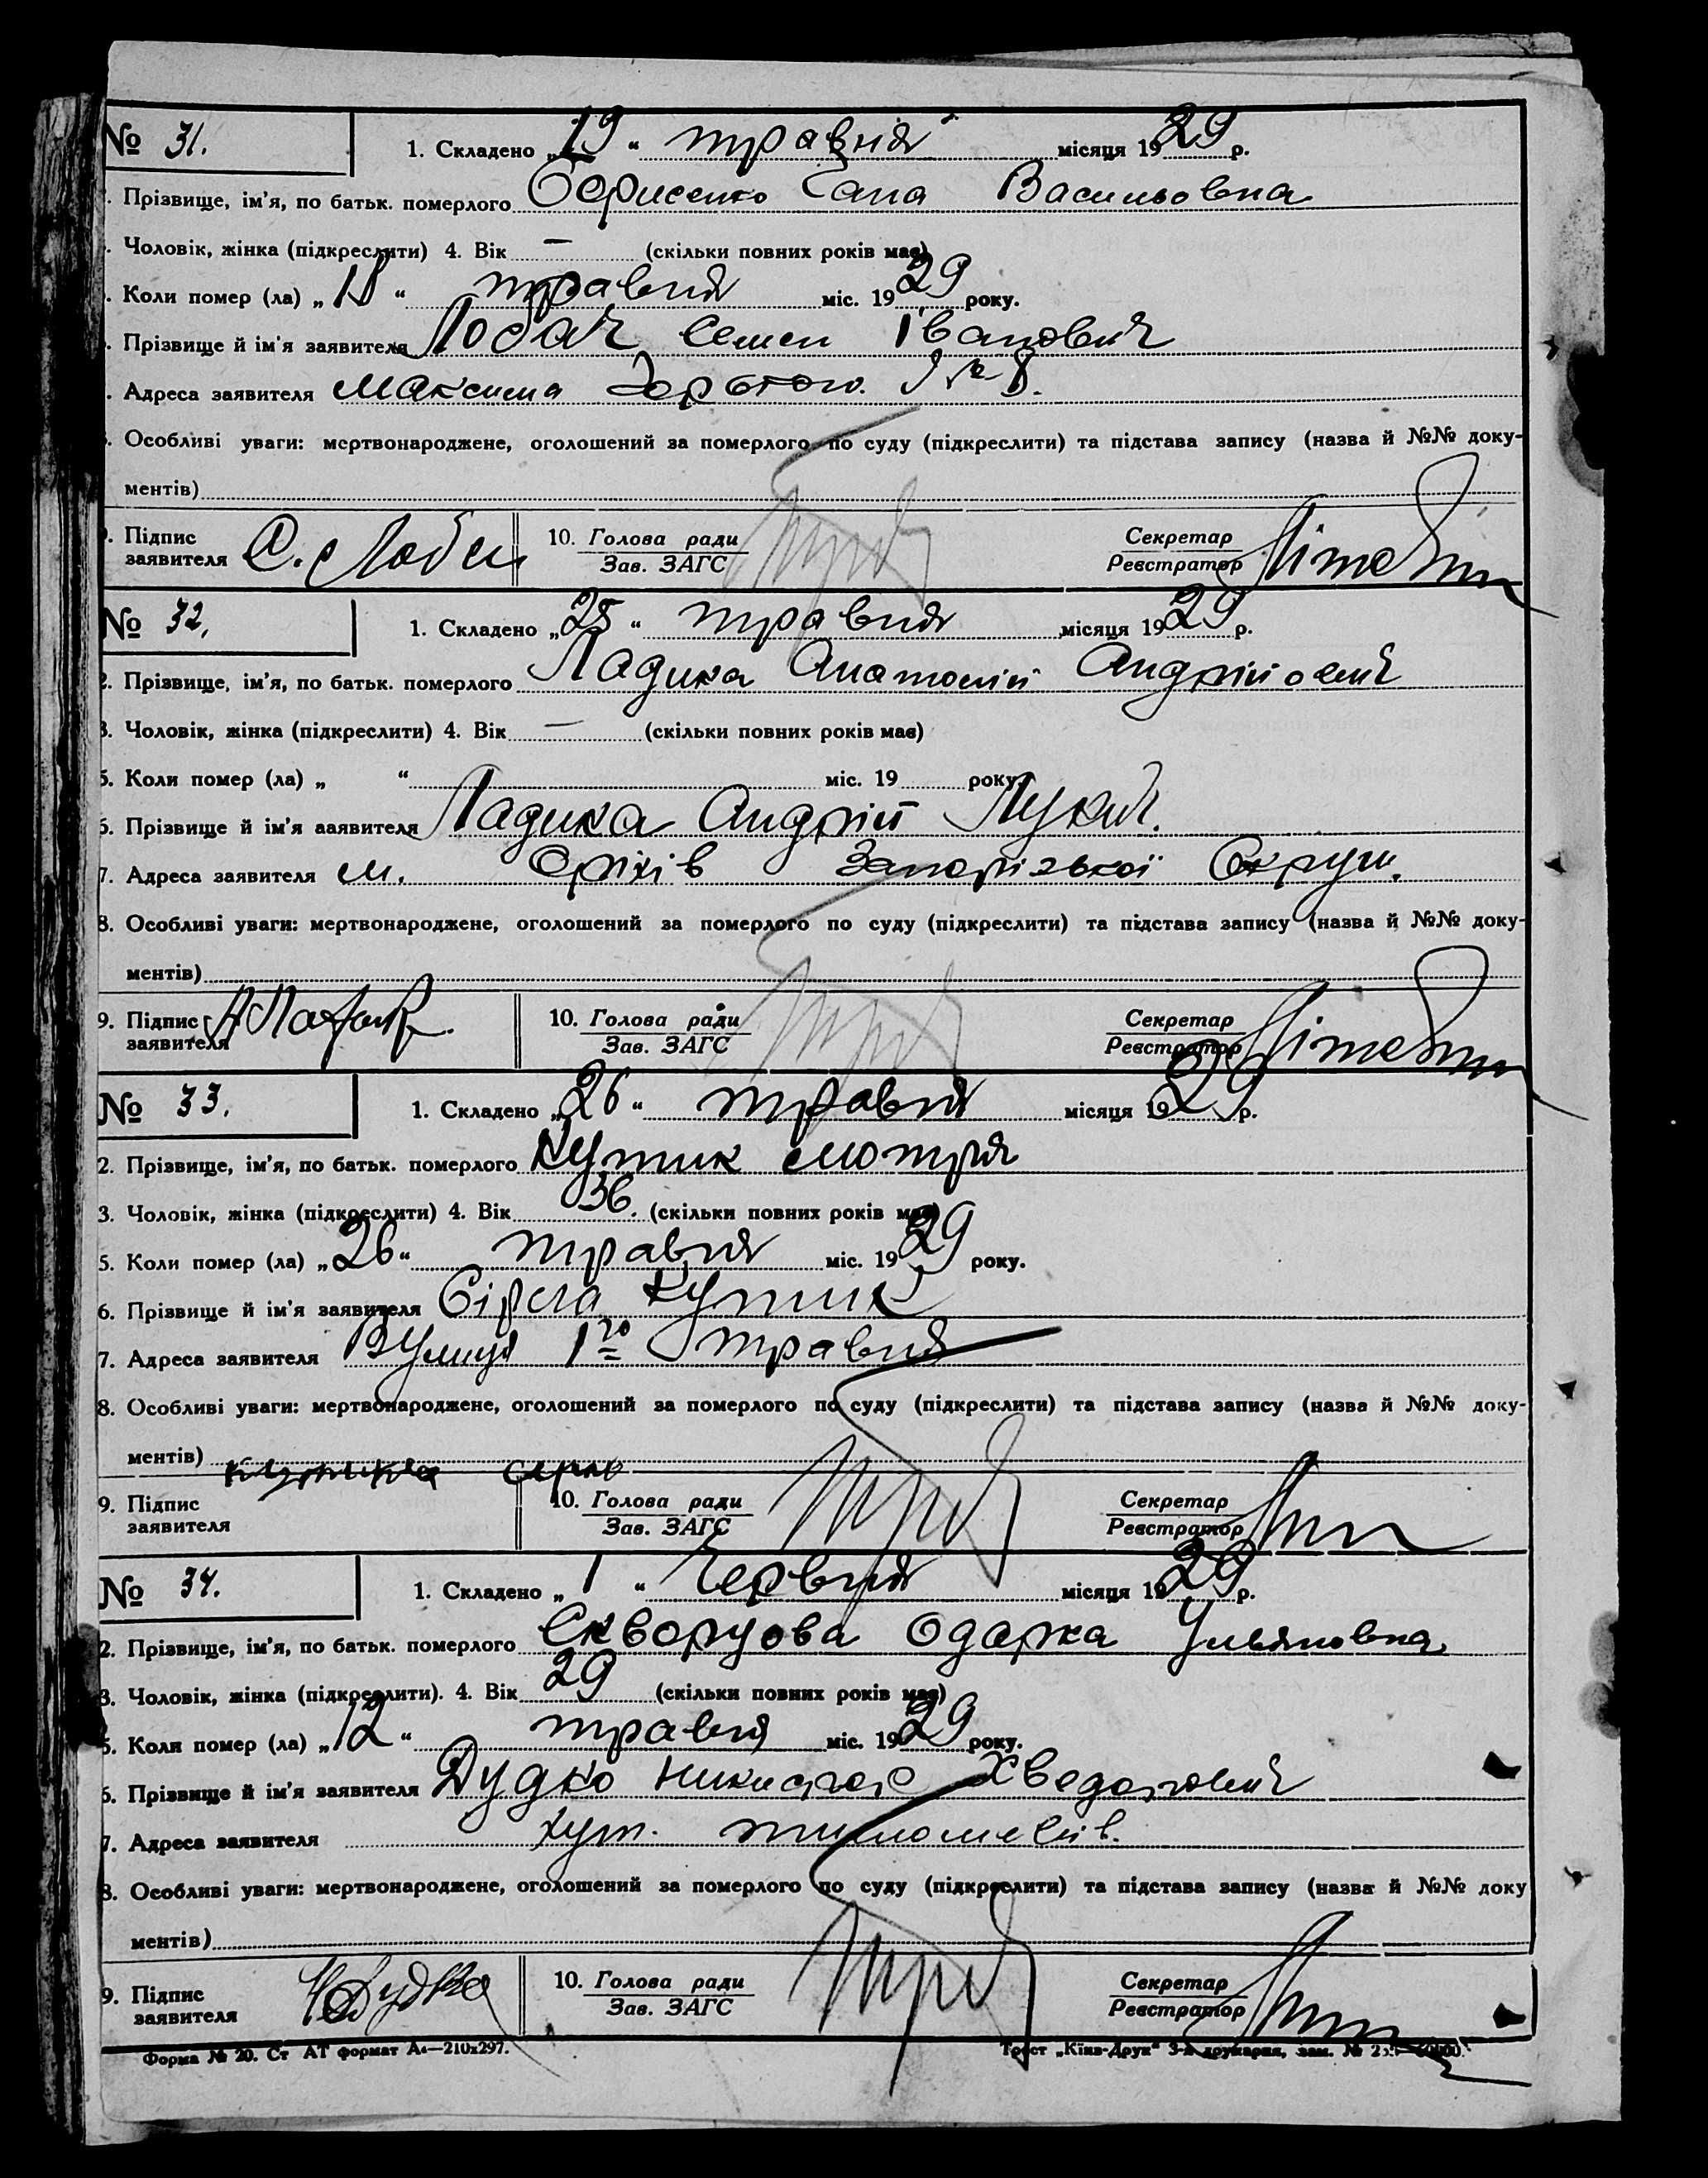 № 31. 1. Складено „19“ травня місяця 1929 р.
Прізвище, ім'я, по батьк. померлого Борисенко Гана Васильовна
Чоловік, жінка (підкреслити) 4. Вік — (скільки повних років має)
Коли помер (ла) „18“ травня міс. 1929 року.
Прізвище й ім'я заявителя Лобач Семен Іванович
Адреса заявителя Максима Горького № 8.
Особливі уваги: мертвонароджене, оголошений за померлого по суду (підкреслити) та підстава запису (назва й №№ доку-
ментів)
Підпис заявителя С. Лобач 10. Голова ради Зав. ЗАГС Секретар Реєстратор
№ 32. 1. Складено „25“ травня місяця 1929 р.
2. Прізвище, ім'я, по батьк. померлого Ладика Анатолій Андрійович
3. Чоловік, жінка (підкреслити) 4. Вік — (скільки повних років має)
5. Коли помер (ла) „ “ міс. 19 року
6. Прізвище й ім'я заявителя Ладика Андрій Лукич.
7. Адреса заявителя м. Оріхів Запорізької Округи.
8. Особливі уваги: мертвонароджене, оголошений за померлого по суду (підкреслити) та підстава запису (назва й №№ доку-
ментів)
9. Підпис заявителя 10. Голова ради Зав. ЗАГС Секретар Реєстратор
№ 33. 1. Складено „26“ травня місяця 1929 р.
2. Прізвище, ім'я, по батьк. померлого Кутик Мотря
3. Чоловік, жінка (підкреслити) 4. Вік 36. (скільки повних років має)
5. Коли помер (ла) „26“ травня міс. 1929 року.
6. Прізвище й ім'я заявителя Кутик
7. Адреса заявителя Вулиця 1го травня
8. Особливі уваги: мертвонароджене, оголошений за померлого по суду (підкреслити) та підстава запису (назва й №№ доку-
ментів)
9. Підпис заявителя 10. Голова ради Зав. ЗАГС Секретар Реєстратор
№ 34. 1. Складено „1“ Червня місяця 1929 р.
2. Прізвище, ім'я, по батьк. померлого Скворцова Одарка Ульяновна
3. Чоловік, жінка (підкреслити). 4. Вік 29 (скільки повних років має)
5. Коли помер (ла) „12“ травня міс. 1929 року.
6. Прізвище й ім'я заявителя Дудко Хведорович
7. Адреса заявителя хут.
8. Особливі уваги: мертвонароджене, оголошений за померлого по суду (підкреслити) та підстава запису (назва й №№ доку
ментів)
9. Підпис заявителя Н Дудко 10. Голова ради Зав. ЗАГС Секретар Реєстратор
Форма № 20. Ст АТ формат А4—210x297. Трест „Київ-Друк“ 3-я друкарня, зам. №